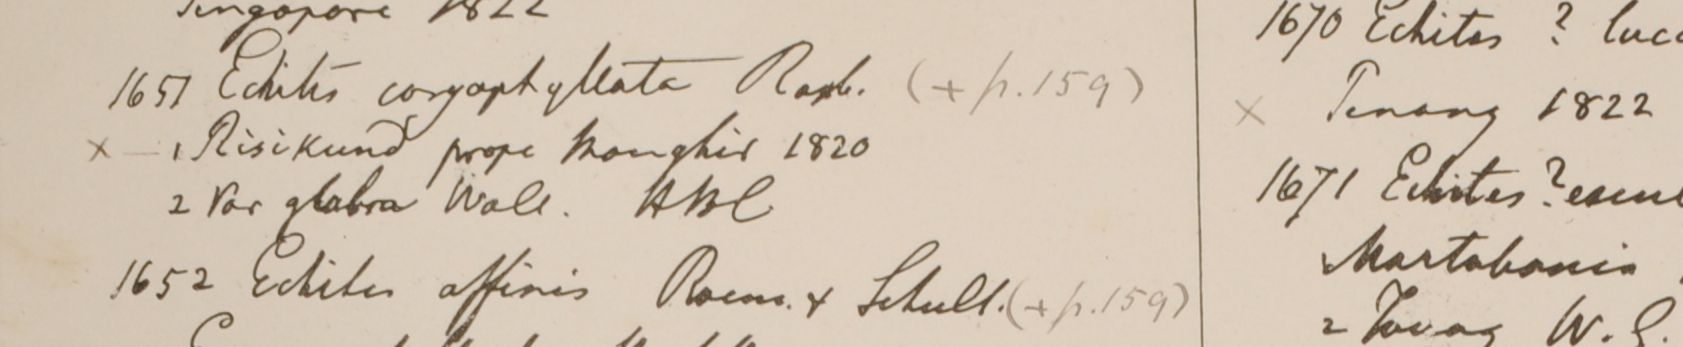 Singapore 1822
1651 Echites caryophyllata Roxb. (+ p. 159)
x — 1 Risikund prope Monghir 1820
2 Var glabra Wall. HBC
1652 Echites affinis Roem. & Schult. (+ p. 159)
1670 Echites ? luc
x Penang 1822
1671 Echites ? escul
Martabania
2 Tavoy W. G.